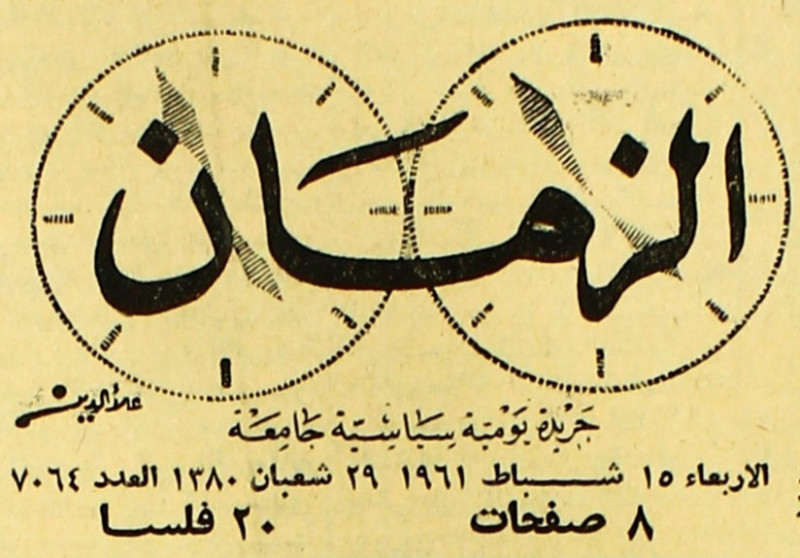 الزمان
علاءالدين
جَريدة يَوْميّة سِيَاسِيّة جَامِعَة
الاربعاء ١٥ شباط ١٩٦١ ٢٩ شعبان ١٣٨٠ العدد ٧٠٦٤
٨ صفحات ٢٠ فلسا